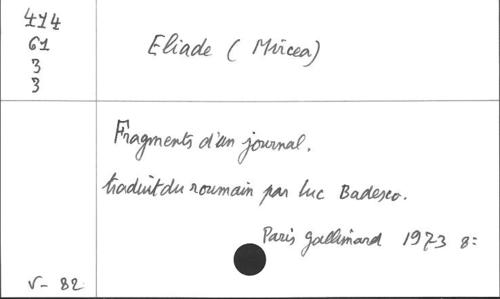 414
61
3
3
Eliade ( Mircea)
Fragments d'un journal.
traduit du roumain par Luc Badesco.
Paris Gallimard 1973 8=
V- 82